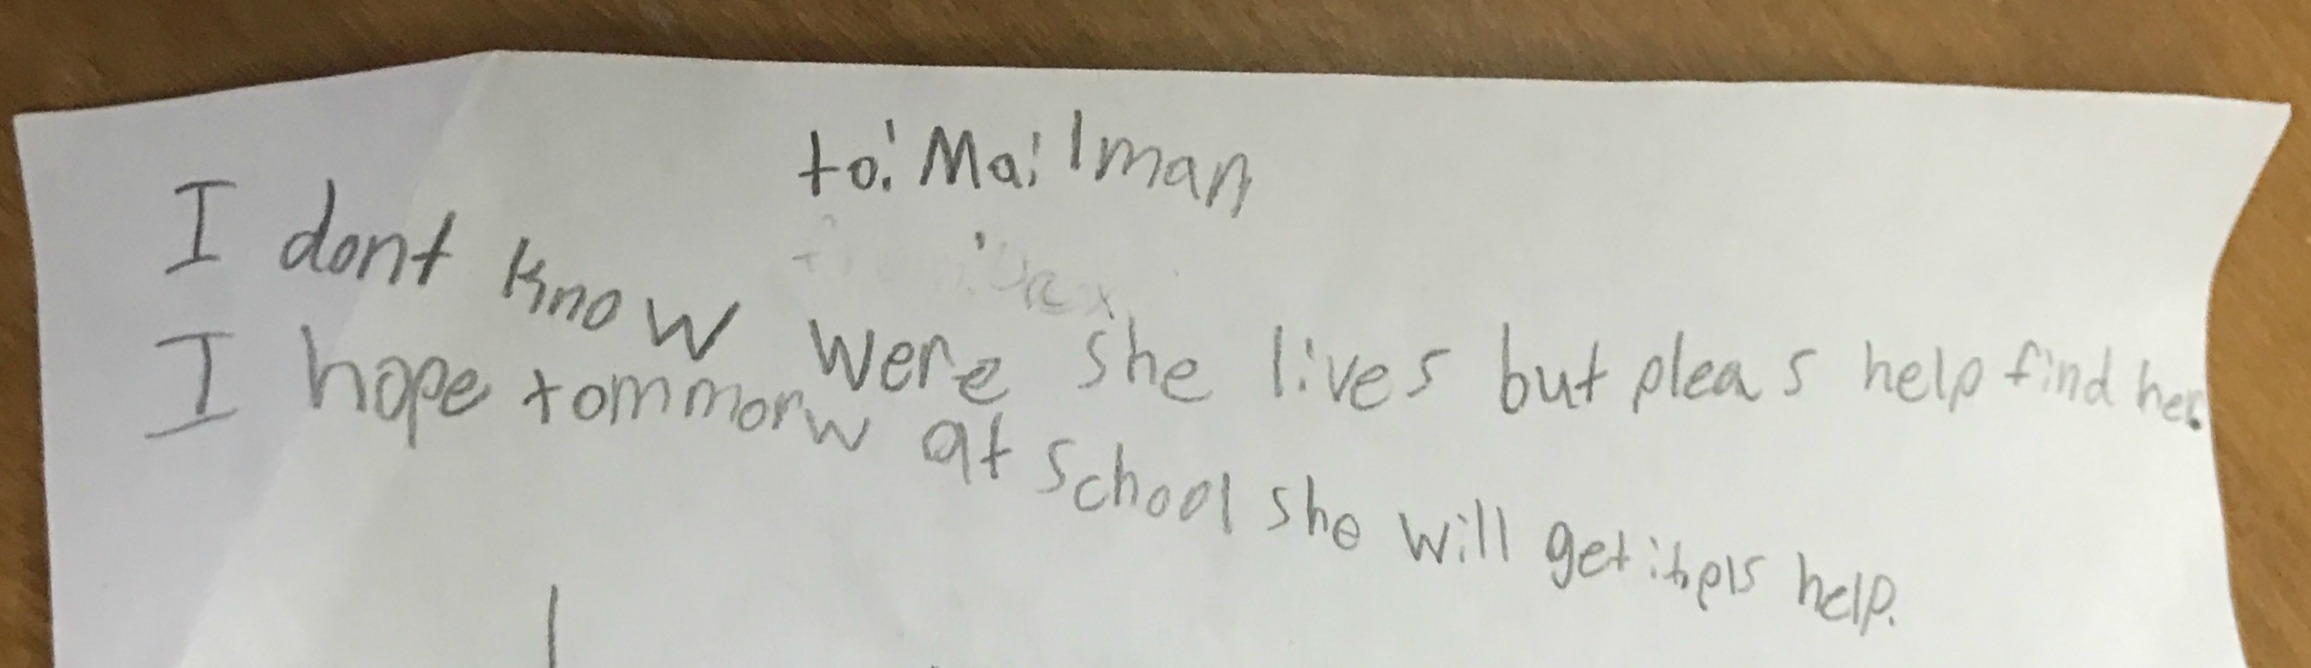 to: Mailman
I dont know were she lives but pleas help find her.
I hope tommorw at school she will get it pls help.